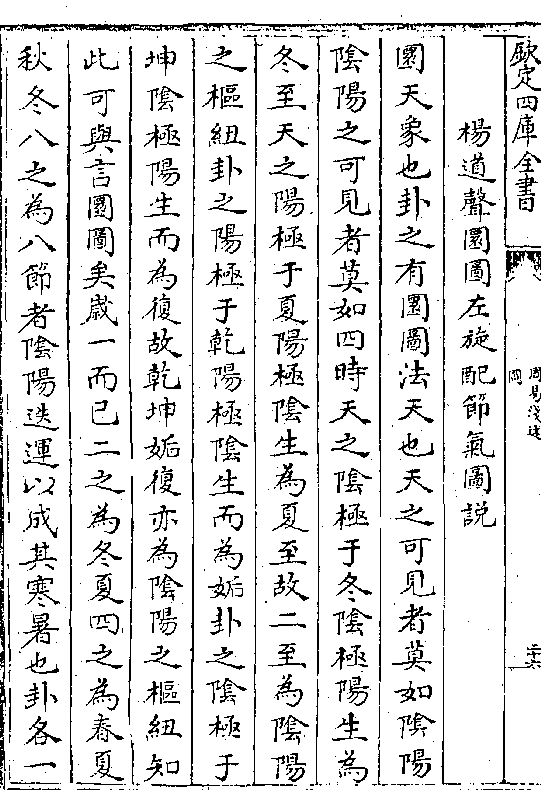 欽定四庫全書
周易淺述
圖
二十六
楊道聲圓圖左旋配節氣圖説
圓天象也卦之有圓圖法天也天之可見者莫如陰陽
陰陽之可見者莫如四時天之陰極于冬陰極陽生為
冬至天之陽極于夏陽極陰生為夏至故二至為陰陽
之樞紐卦之陽極于乾陽極陰生而為姤卦之陰極于
坤陰極陽生而為復故乾坤姤復亦為陰陽之樞紐知
此可與言圓圖矣歲一而已二之為冬夏四之為春夏
秋冬八之為八節者陰陽迭運以成其寒暑也卦各一